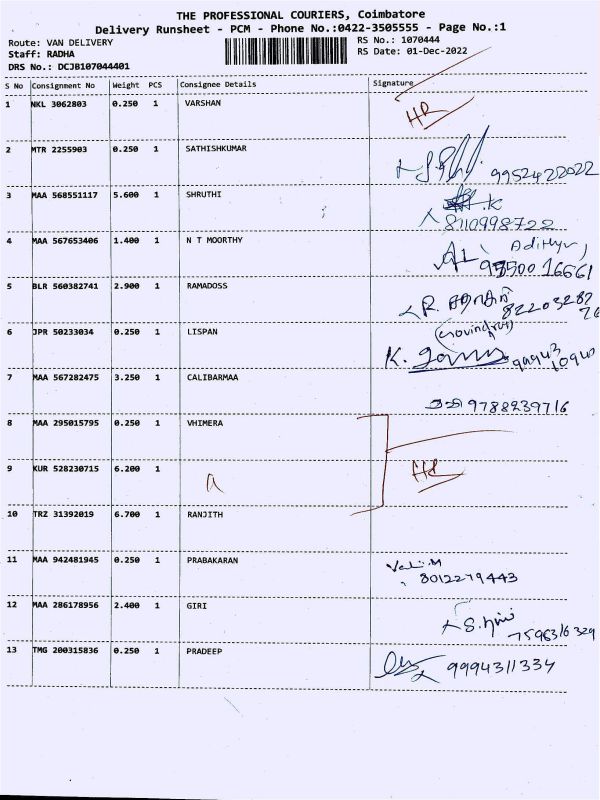 THE PROFESSIONAL COURIERS, Coimbatore
Delivery Runsheet - PCM - Phone No.:0422-3505555 - Page No.:1
Route: VAN DELIVERY RS No.: 1070444
Staff: RADHA RS Date: 01-Dec-2022
DRS No.: DCJB107044401
S No Consignment No Weight PCS Consignee Details Signature
1 NKL 3062803 0.250 1 VARSHAN HR
2 MTR 2255903 0.250 1 SATHISHKUMAR 9952422022
3 MAA 568551117 5.600 1 SHRUTHI K
8110998722
4 MAA 567653406 1.400 1 N T MOORTHY
5 BLR 560382741 2.900 1 RAMADOSS R.
6 JPR 50233034 0.250 1 LISPAN K.
7 MAA 567282475 3.250 1 CALIBARMAA 9788239716
8 MAA 295015795 0.250 1 VHIMERA
9 KUR 528230715 6.200 1 HR
10 TRZ 31392019 6.700 1 RANJITH
11 MAA 942481945 0.250 1 PRABAKARAN
8012279443
12 MAA 286178956 2.400 1 GIRI
7596316329
13 TMG 200315836 0.250 1 PRADEEP 9994311334